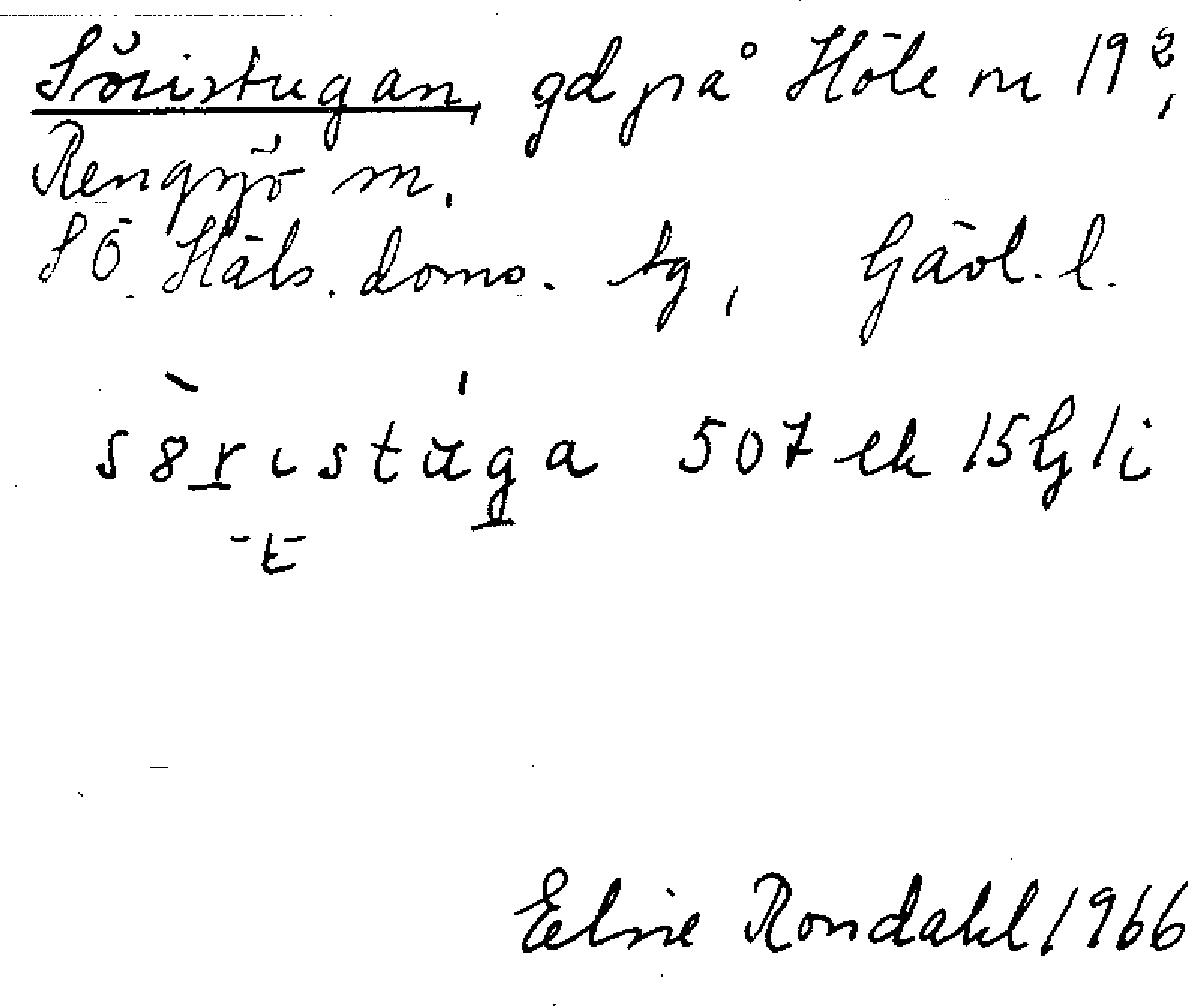 Söristugan, gd på Höle nr 19²,
Rengsjö sn.
SÖ. Häls. doms. tg, Gävl. l.
sòrıstúga 507 ek 15 Gl i
-t-
Elsie Rondahl 1966